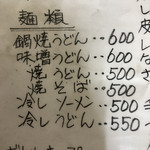 麺類
鍋焼うどん‥600
味噌うどん‥600
焼うどん‥500
焼そば‥500
冷しソーメン‥500
冷しうどん‥550